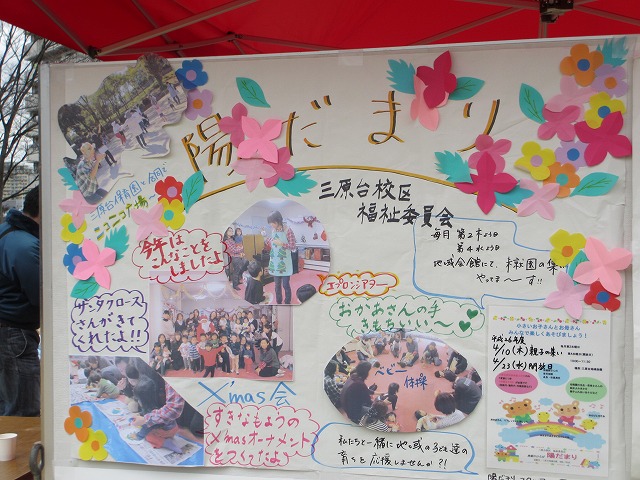 陽だまり
三原台校区
福祉委員会
三原台保育園と合同で
ニコニコ広場
今年は
こんなことを
しましたよ
エプロンシアター
毎月 第2木よう日
第4水よう日
地域会館にて、
やってま〜す!!
サンタクロース
さんがきて
くれたよ!!
おかあさんの手
きもちいい〜
ベビー
体操
X'mas会
すきなもようの
Xmasオーナメント
をつくったよ
私たちと一緒に地域の子ども達の
育ちを応援しませんか?!
小さいお子さんとお母さん
みんなで楽しくあそびましょう!
平成26年度
4/10(木)親子の集い
4/23(水)開放日
陽だまり